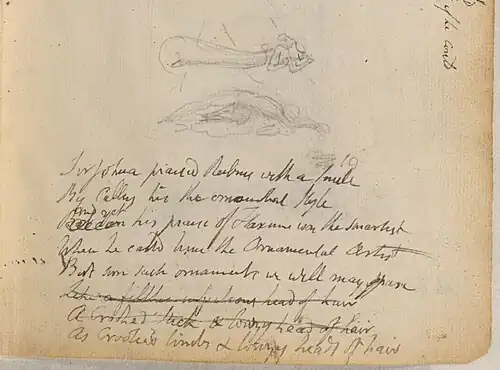 19
Sir Joshua praised Rubens with a Smile
By Calling his the ornamental Style
And yet his praise of Flaxman was the smartest
When he calld him the Ornamental Artist
But sure such ornaments we well may spare
Like a filthy infectious head of hair
A Crooked Stick & louzy head of hair
As Crooked limbs & louzy heads of hair